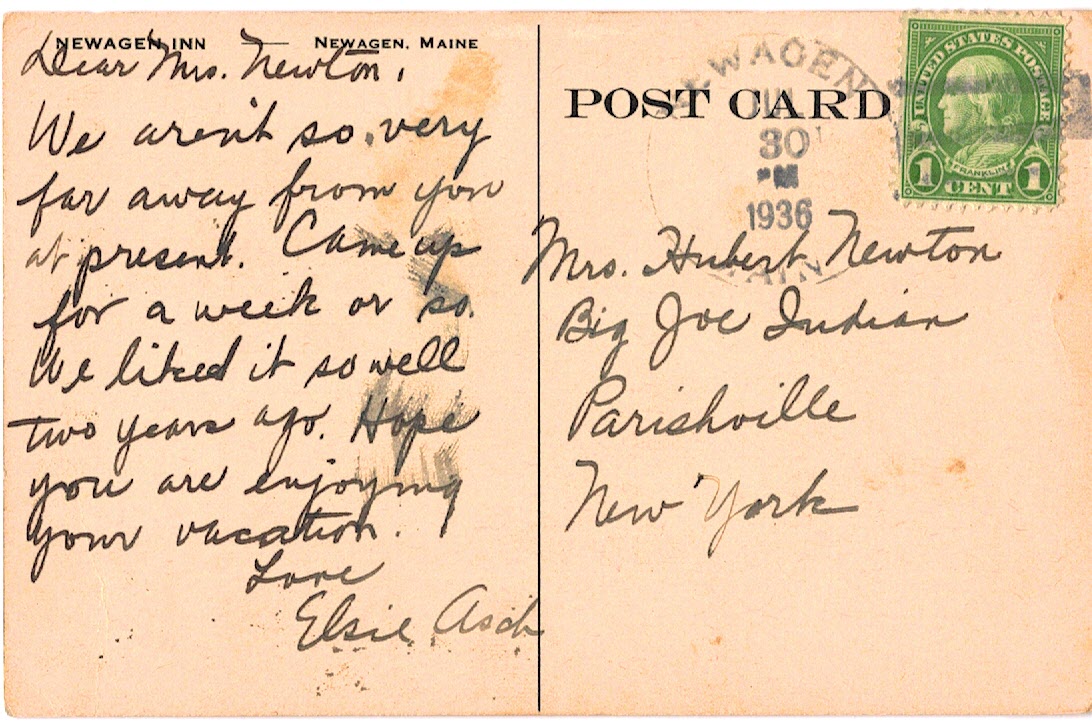 NEWAGEN INN NEWAGEN, MAINE
Dear Mrs. Newton,
We aren't so very
far away from you
at present. Came up
for a week or so.
We liked it so well
two years ago. Hope
you are enjoying
your vacation.
Love
Elsie Asch
POST CARD
NEWAGEN
30
PM
1936
MAINE
UNITED STATES POSTAGE
FRANKLIN
1 CENT 1
Mrs. Hubert Newton
Big Joe Indian
Parishville
New York